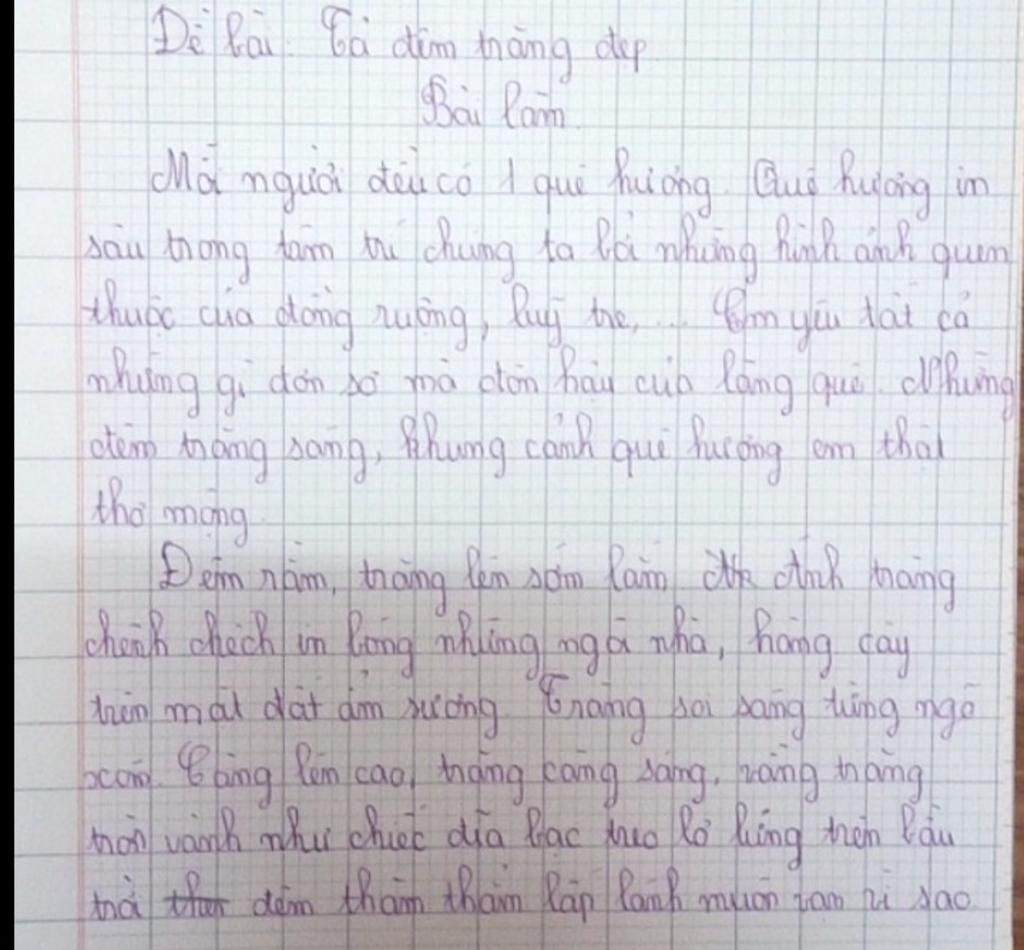 Đề bài. Tả đêm trăng đẹp
Bài làm
Mỗi người đều có 1 quê hương. Quê hương in
sâu trong tâm trí chúng ta là những hình ảnh quen
thuộc của đồng ruộng, luỹ tre,... Em yêu tất cả
những gì đơn sơ mà đôn hậu của làng quê. Những
đêm trăng sáng, khung cảnh quê hương em thật
thơ mộng
Đêm rằm, trăng lên sớm lắm. Ánh trăng
chênh chếch in bóng những ngôi nhà, hàng cây
trên mặt đất ẩm sương. Trăng soi sáng từng ngõ
xóm. Càng lên cao, trăng càng sáng, vầng trăng
tròn vành như chiếc đĩa bạc treo lơ lửng trên bầu
trời đêm thăm thẳm lấp lánh muôn vàn vì sao